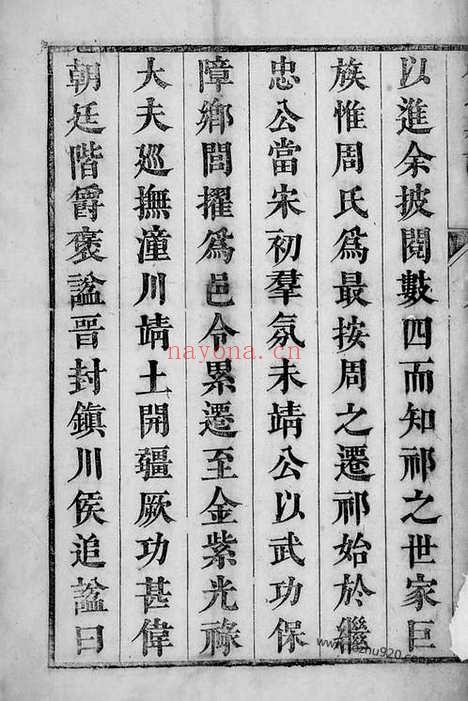 以進余披閱數四而知祁之世家巨
族惟周氏爲最按周之遷祁始於繼
忠公當宋初羣氛未靖公以武功保
障鄉閭擢爲邑令累遷至金紫光祿
大夫巡撫潼川靖土開疆厥功甚偉
朝廷階爵褒謚晉封鎭川侯追謚曰
nayona.cn